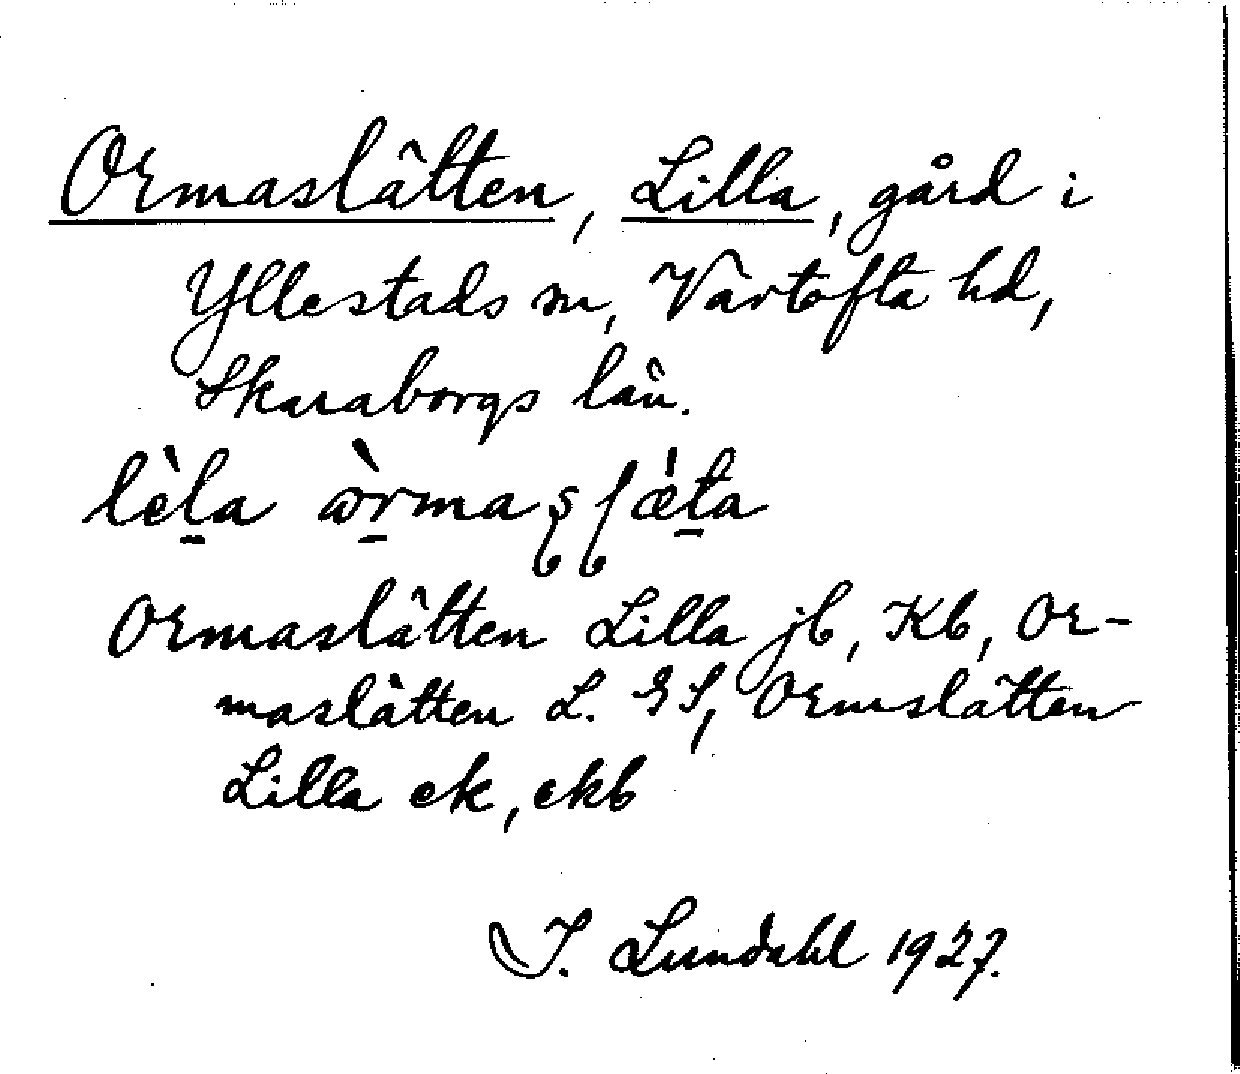 Ormaslätten, Lilla, gård i
Yllestads sn, Vartofta hd,
Skaraborgs län.
Ormaslätten Lilla jb, Kb, Or-
maslätten L. GS, Ormslätten
Lilla ek, ekb
I. Lundahl 1927.